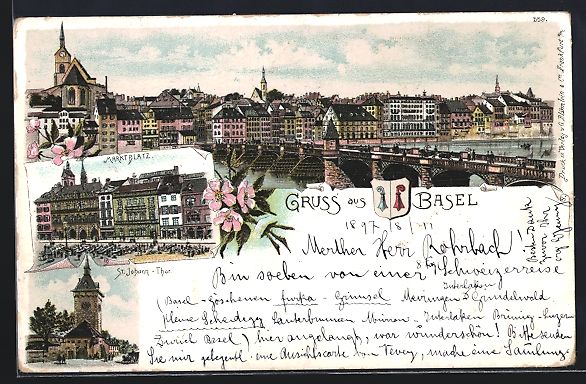 159.
Druck u. Verlag v.
MARKTPLATZ.
GRUSS aus BASEL
1897 18/11
Werther Herr Rohrbach!
St. Johann-Thor.
Bin soeben von einer Schweizerreise
Interlaken
(Basel - Göschenen furka - Grimsel Meiringen Grindelwald
Kleine Scheidegg Lauterbrunnen Mürren - Interlaken Brünig - Luzern
Zürich Basel) hier angelangt, war wunderschön! Bitte senden
Sie mir gelegentl. eine Ansichtscarte von Vevey, mache eine Samlung